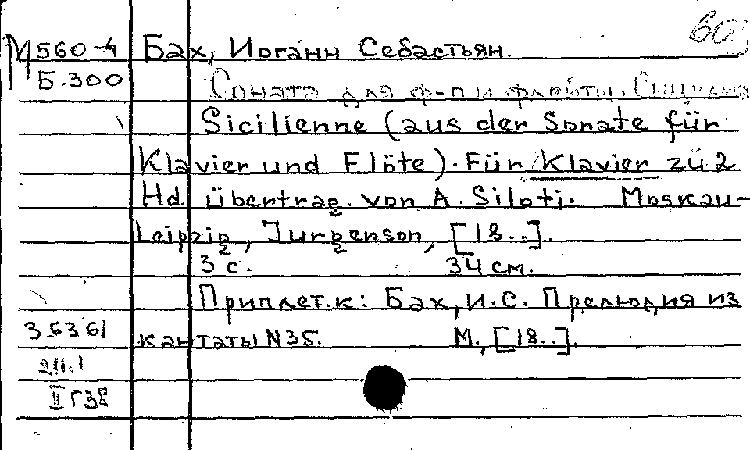 М 560-4 Бах, Иоганн Себастьян. 60
Б.300 Соната для ф-п и флейты.
Sicilienne (aus der Sonate für
Klavier und Flöte). Für Klavier zu 2
Hd. übertrag. von A. Siloti. Moskau-
Leipzig, Jurgenson, [18..].
3 с. 34 см.
Приплет. к: Бах, И.С. Прелюдия из
35361 кантаты N35. М., [18..].